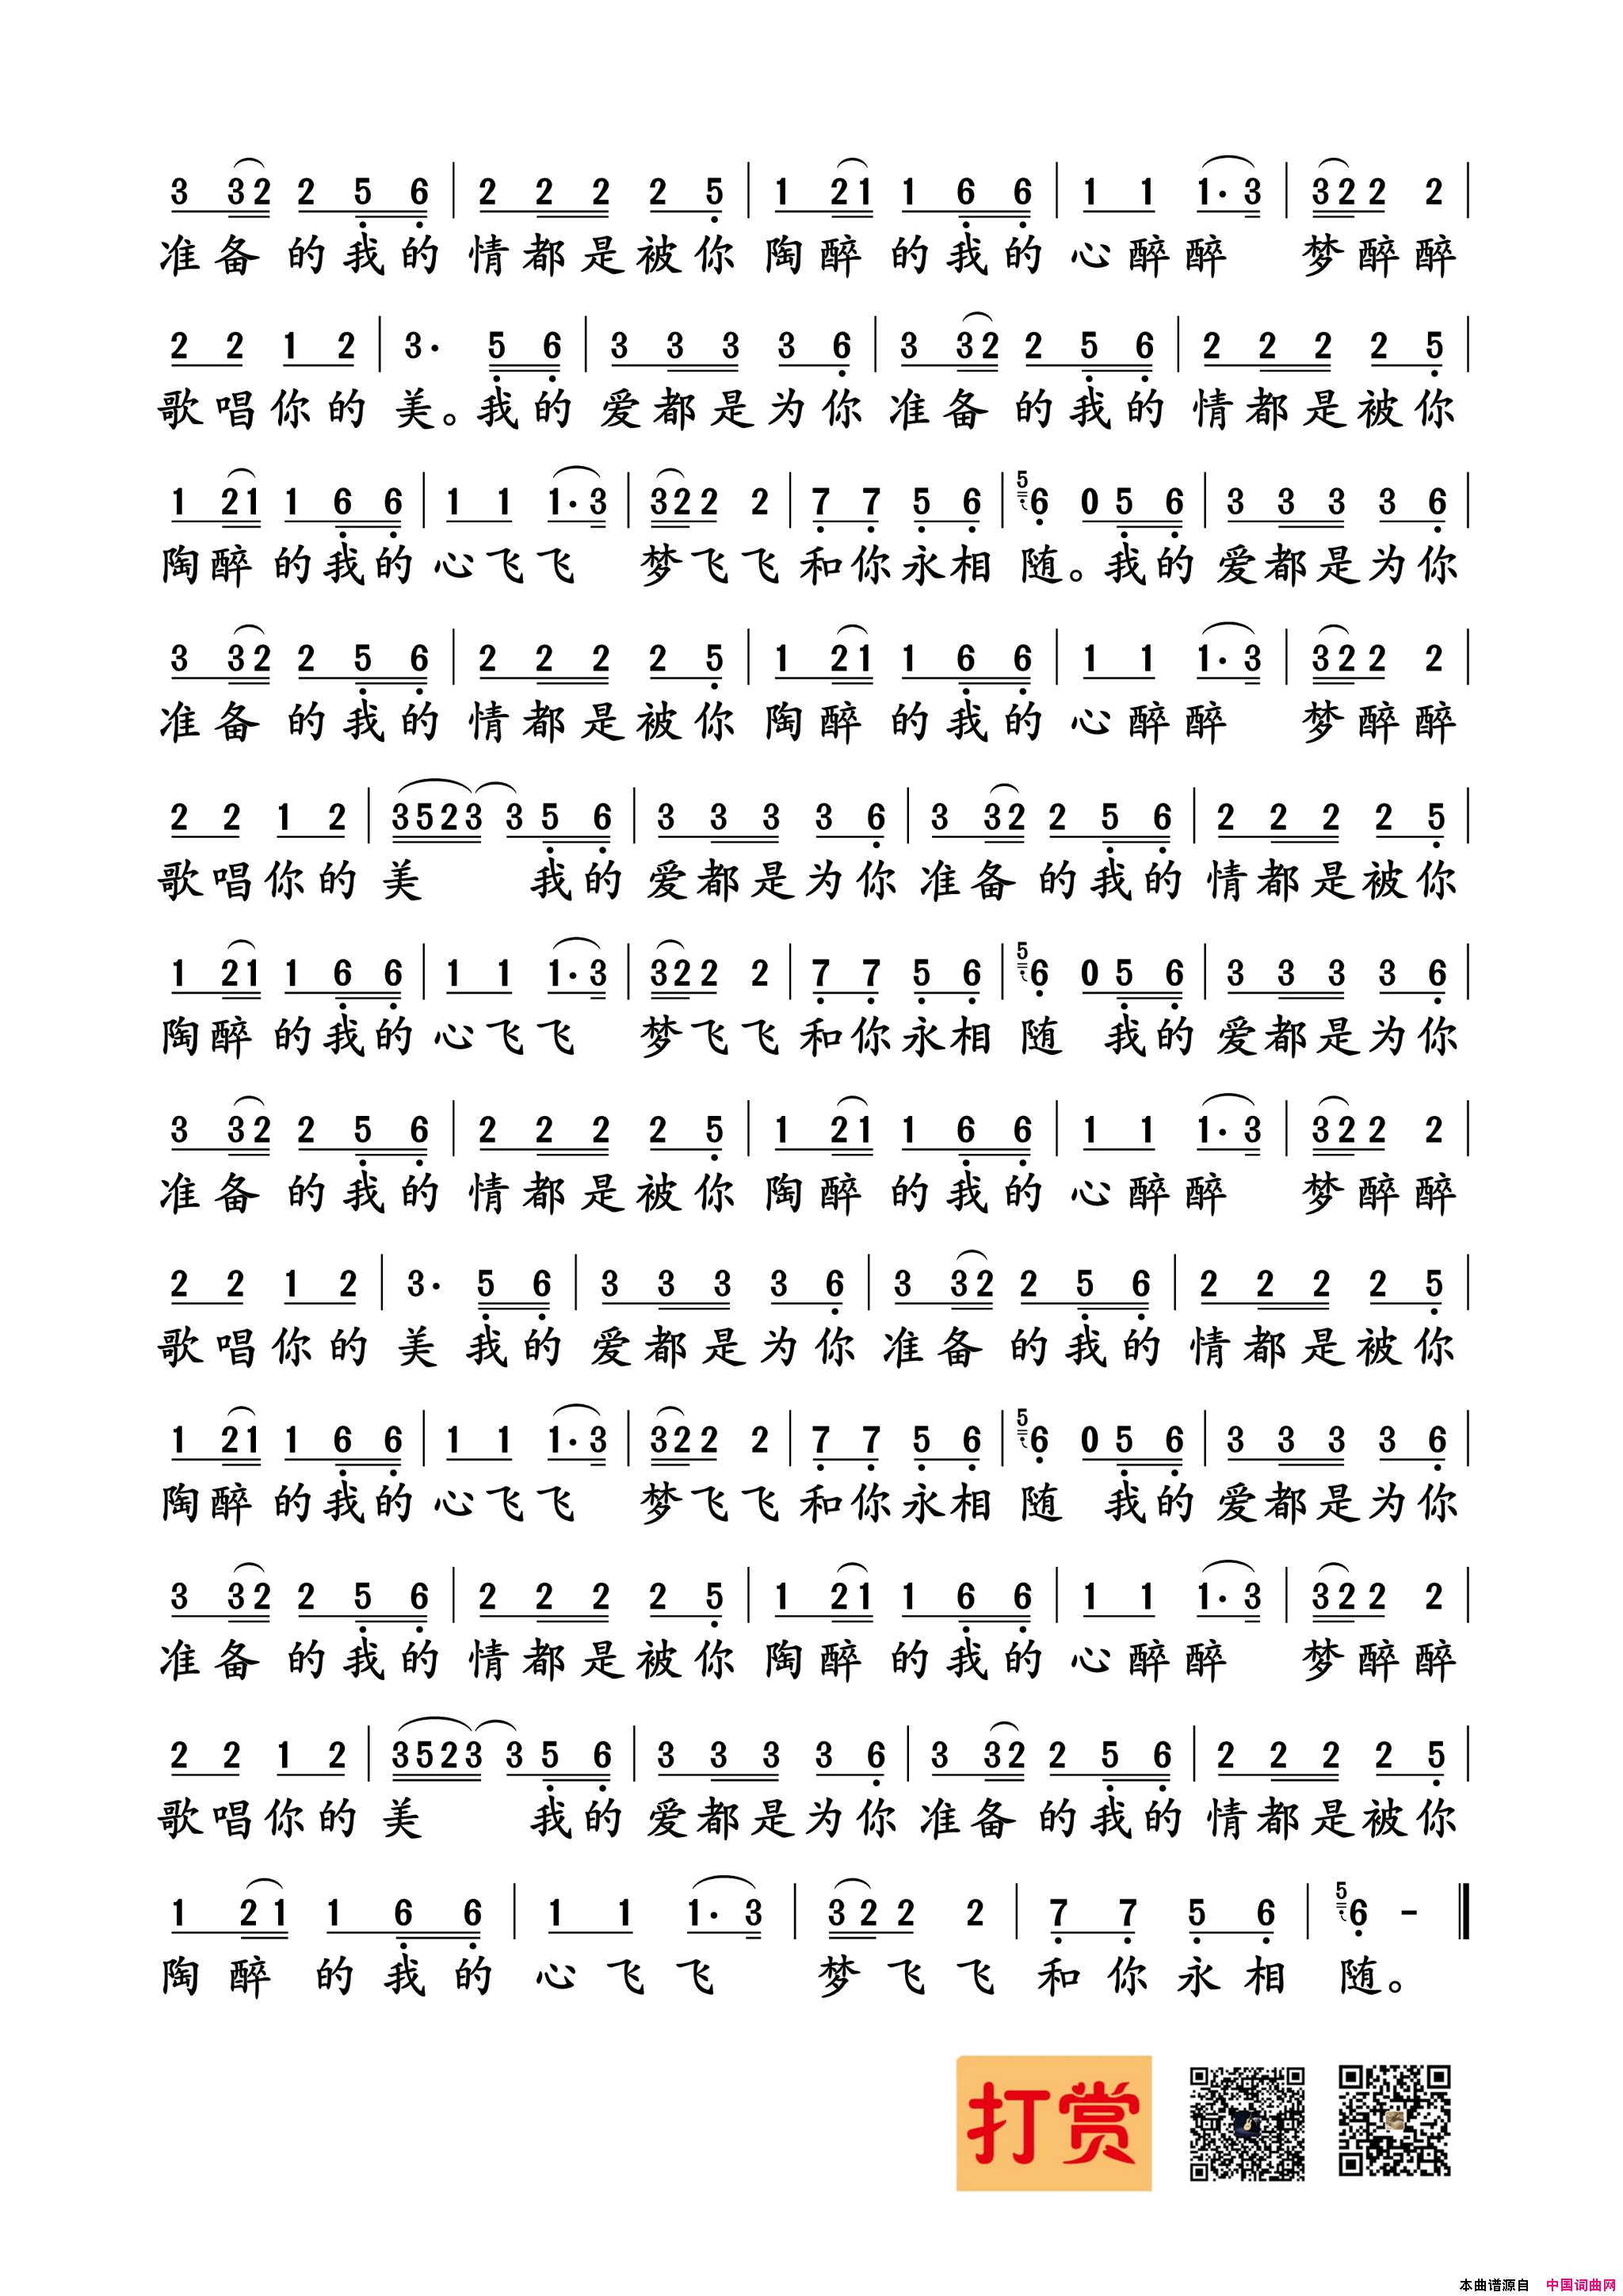 3 32 2 5 6 | 2 2 2 2 5 | 1 21 1 6 6 | 1 1 1· 3 | 32 2 2 |
准备 的我的 情都是被你 陶醉 的我的 心醉醉 梦醉醉
2 2 1 2 | 3· 5 6 | 3 3 3 3 6 | 3 32 2 5 6 | 2 2 2 2 5 |
歌唱你的 美。我的 爱都是为你 准备 的我的 情都是被你
1 21 1 6 6 | 1 1 1· 3 | 32 2 2 | 7 7 5 6 | 5 6 0 5 6 | 3 3 3 3 6 |
陶醉 的我的 心飞飞 梦飞飞 和你永相 随。我的 爱都是为你
3 32 2 5 6 | 2 2 2 2 5 | 1 21 1 6 6 | 1 1 1· 3 | 32 2 2 |
准备 的我的 情都是被你 陶醉 的我的 心醉醉 梦醉醉
2 2 1 2 | 3523 3 5 6 | 3 3 3 3 6 | 3 32 2 5 6 | 2 2 2 2 5 |
歌唱你的 美 我的 爱都是为你 准备 的我的 情都是被你
1 21 1 6 6 | 1 1 1· 3 | 32 2 2 | 7 7 5 6 | 5 6 0 5 6 | 3 3 3 3 6 |
陶醉 的我的 心飞飞 梦飞飞 和你永相 随 我的 爱都是为你
3 32 2 5 6 | 2 2 2 2 5 | 1 21 1 6 6 | 1 1 1· 3 | 32 2 2 |
准备 的我的 情都是被你 陶醉 的我的 心醉醉 梦醉醉
2 2 1 2 | 3· 5 6 | 3 3 3 3 6 | 3 32 2 5 6 | 2 2 2 2 5 |
歌唱你的 美 我的 爱都是为你 准备 的我的 情都是被你
1 21 1 6 6 | 1 1 1· 3 | 32 2 2 | 7 7 5 6 | 5 6 0 5 6 | 3 3 3 3 6 |
陶醉 的我的 心飞飞 梦飞飞 和你永相 随 我的 爱都是为你
3 32 2 5 6 | 2 2 2 2 5 | 1 21 1 6 6 | 1 1 1· 3 | 32 2 2 |
准备 的我的 情都是被你 陶醉 的我的 心醉醉 梦醉醉
2 2 1 2 | 3523 3 5 6 | 3 3 3 3 6 | 3 32 2 5 6 | 2 2 2 2 5 |
歌唱你的 美 我的 爱都是为你 准备 的我的 情都是被你
1 21 1 6 6 | 1 1 1· 3 | 32 2 2 | 7 7 5 6 | 5 6 - ‖
陶醉 的我的 心飞飞 梦飞飞 和你永相 随。
打赏
本曲谱源自 中国词曲网